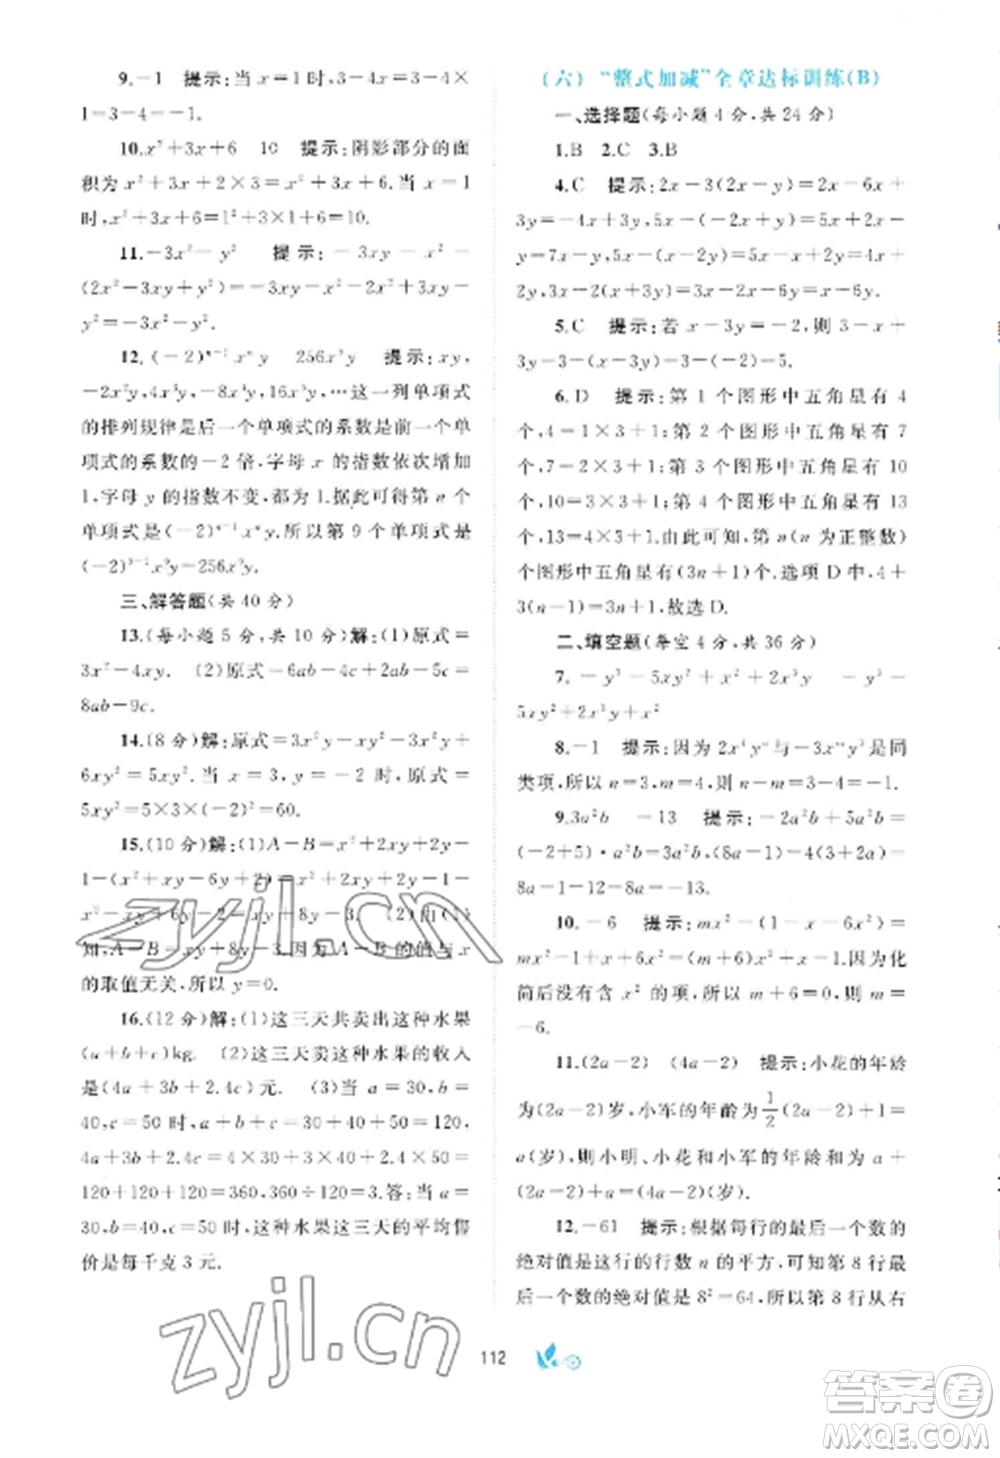 9.－1　提示:当 x＝1 时,1－3－4×
1－3－4＝－1.
10.x²＋3x＋6　10　提示:阴影部分的面
积为 x²＋3x＋2×3＝x²＋3x＋6.当 x＝1
时,x²＋3x＋6＝1²＋3×1＋6＝10.
11.－3x²－y²　提示:－3xy－x²－
(2x²－3xy＋y²)＝－3xy－x²－2x²＋3xy－
y²＝－3x²－y².
12.(－2)ⁿ⁻¹xⁿy　256x⁹y　提示:xy,
－2x²y,4x³y,－8x⁴y,16x⁵y,…这一列单项式
的排列规律是后一个单项式的系数是前一个单
项式的系数的－2 倍,字母 x 的指数依次增加
1,字母 y 的指数不变,都为 1.据此可得第 n 个
单项式是(－2)ⁿ⁻¹xⁿy.所以第 9 个单项式是
(－2)⁹⁻¹x⁹y＝256x⁹y.
三、解答题(共 40 分)
13.(每小题 5 分,共 10 分)解:(1)原式＝
3x²－4xy.　(2)原式＝6ab－4c＋2ab－5c＝
8ab－9c.
14.(8 分)解:原式＝3x²y－3x²y＋
6xy²－xy²＝5xy².当 x＝3,y＝－2 时,原式＝
5xy²＝5×3×(－2)²＝60.
15.(10 分)解:(1)A－B＝x²＋xy＋2y－
1－(x²－xy－6y＋2)＝x²＋xy＋2y－1－
x²＋xy＋6y－2＝2xy＋8y－3.　(2)由(1)
知,A－B＝2xy＋8y－3.因为 A－B 的值与 x
的取值无关,所以 y＝0.
16.(12 分)解:(1)这三天共卖出这种水果
(a＋b＋c)kg.　(2)这三天卖这种水果的收入
是(4a＋3b＋2.4c)元.　(3)当 a＝30,b＝
40,c＝50 时,a＋b＋c＝30＋40＋50＝120,
4a＋3b＋2.4c＝4×30＋3×40＋2.4×50＝
120＋120＋120＝360,360÷120＝3.答:当 a＝
30,b＝40,c＝50 时,这种水果这三天的平均售
价是每千克 3 元.
(六)“整式加减”全章达标训练(B)
一、选择题(每小题 4 分,共 24 分)
1.B　2.C　3.B
4.C　提示:2x－3(2x－y)＝2x－6x＋
3y＝－4x＋3y,5x－(－2y＋x)＝5x＋2x－
y＝7x－y,5x－(x－2y)＝5x－x＋2y＝4x＋
2y,2x－(x＋3y)＝2x－x－3y＝x－3y.
5.C　提示:若 x－3y＝－2,则 3－x＋
3y＝3－(x－3y)＝3－(－2)＝5.
6.D　提示:第 1 个图形中五角星有 4
个,4＝1×3＋1;第 2 个图形中五角星有 7
个,7＝2×3＋1;第 3 个图形中五角星有 10
个,10＝3×3＋1;第 4 个图形中五角星有 13
个,13＝4×3＋1.由此可知,第 n(n 为正整数)
个图形中五角星有(3n＋1)个.选项 D 中,4＋
3(n－1)＝3n＋1.故选 D.
二、填空题(每空 4 分,共 36 分)
7.－y³－5xy²＋x²＋2x³y　－y³－
5xy²＋2x³y＋x²
8.－1　提示:因为 2x⁴yⁿ与－3xᵐy³是同
类项,所以 n＝3,m＝4,则 n－m＝3－4＝－1.
9.3a²b　－13　提示:－2a²b＋5a²b＝
(－2＋5)·a²b＝3a²b;(8a－1)－(8a＋12)＝
8a－1－8a－12＝－13.
10.－6　提示:mx²－(1－x－6x²)＝
mx²－1＋x＋6x²＝(m＋6)x²＋x－1.因为化
简后没有含 x² 的项,所以 m＋6＝0,所以 m＝
－6.
11.(2a－2)　(4a－2)　提示:小花的年龄
为(2a－2)岁,小军的年龄为½(2a－2)＋1＝
a(岁),所以小明、小花和小军的年龄和为 a＋
(2a－2)＋a＝(4a－2)岁.
12.－61　提示:根据每行的最后一个数的
绝对值是这行的行数 n 的平方,可知第 8 行最
后一个数的绝对值是 8²＝64,所以第 8 行从右
112
zyjl.cn
zyjl.cn
答案圈
MXQE.COM